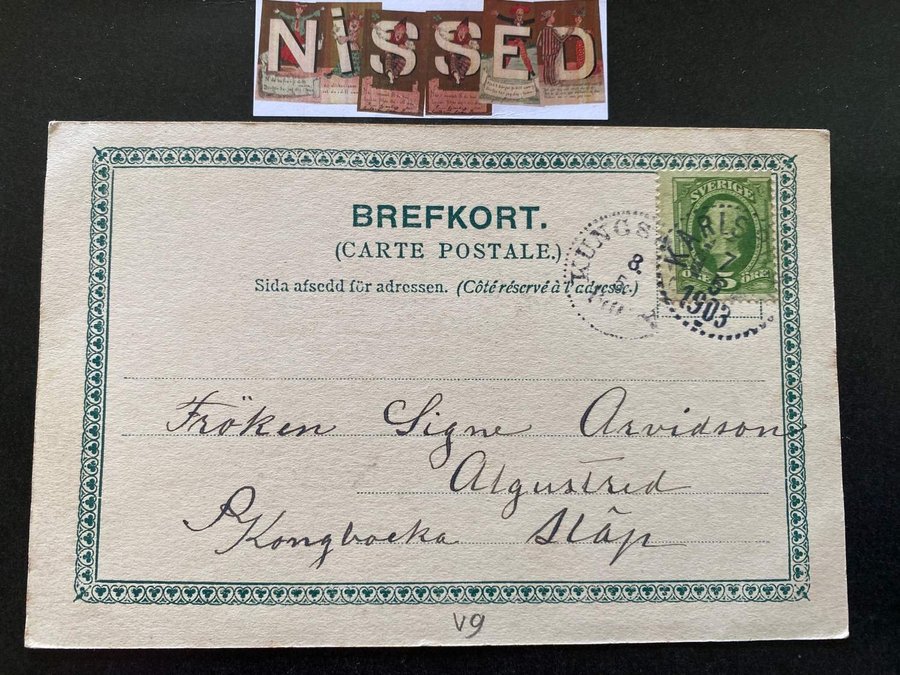 NISSED
BREFKORT.
(CARTE POSTALE.)
Sida afsedd för adressen. (Côté réservé à l'adresse.)
SVERIGE
5 ÖRE
KUNGS
8
5
KARLS
7
5
1903
Fröken Signe Arvidson
Algustred
Kongbacka Släp
V9